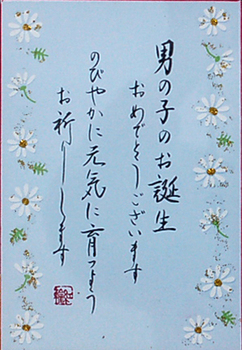 男の子のお誕生
おめでとうございます
のびやかに元気に育つよう
お祈りします